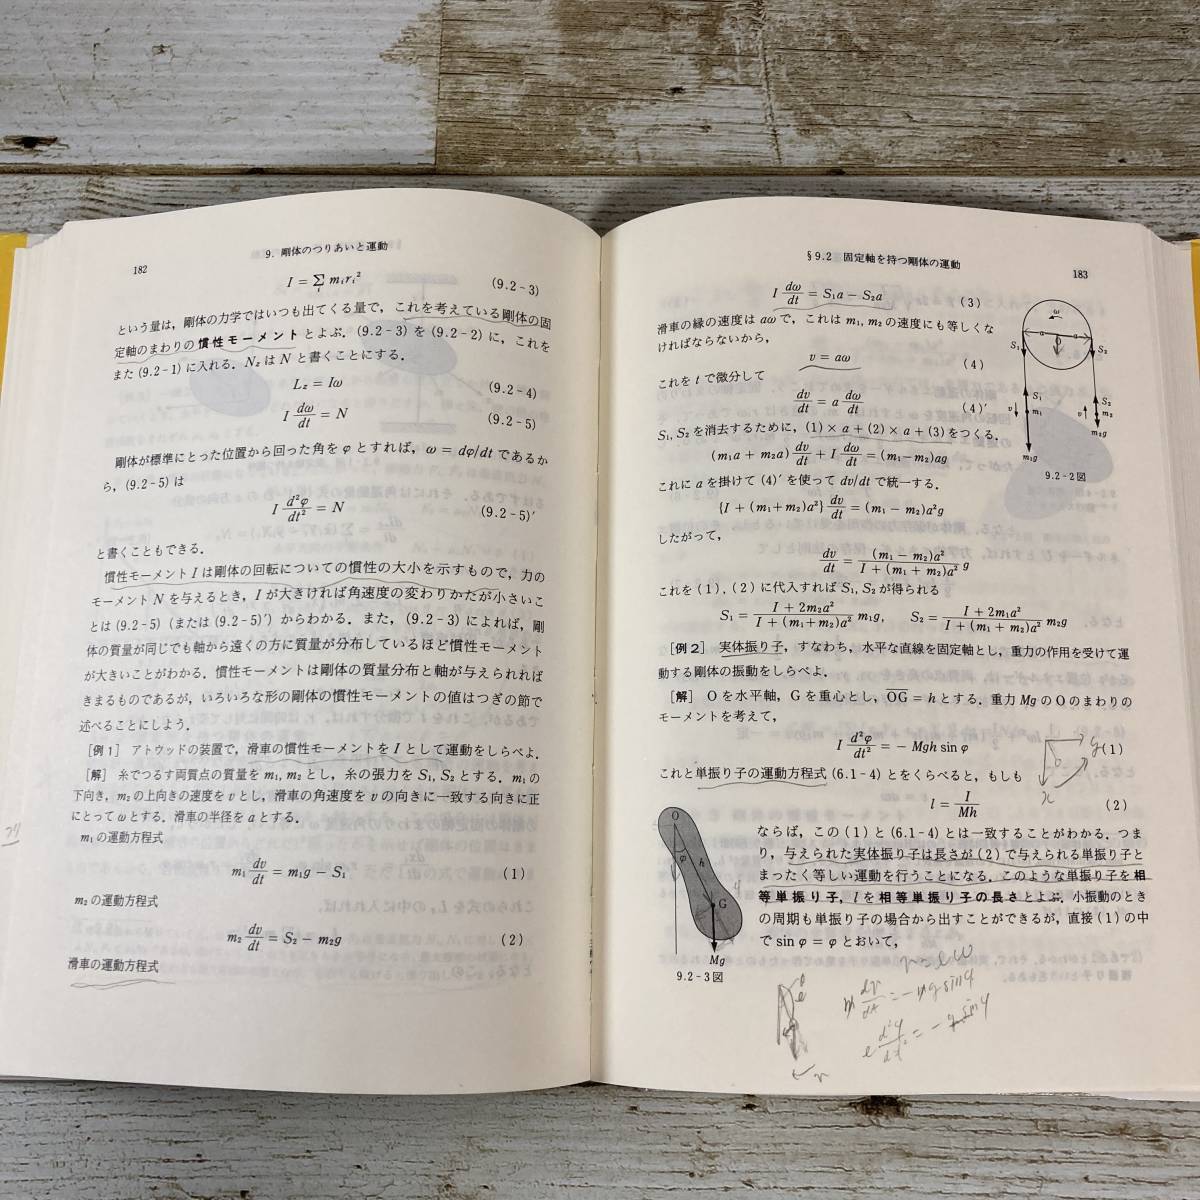 182
9. 剛体のつりあいと運動
I = Σ_i m_i r_i² (9.2-3)
という量は，剛体の力学ではいつも出てくる量で，これを考えている剛体の固
定軸のまわりの慣性モーメントとよぶ．(9.2-3) を (9.2-2) に，これを
また (9.2-1) に入れる．N_z は N と書くことにする．
L_z = Iω (9.2-4)
I dω/dt = N (9.2-5)
剛体が標準にとった位置から回った角を φ とすれば，ω = dφ/dt であるか
ら，(9.2-5) は
I d²φ/dt² = N (9.2-5)′
と書くこともできる．
慣性モーメント I は剛体の回転についての慣性の大小を示すもので，力の
モーメント N を与えるとき，I が大きければ角速度の変わりかたが小さいこ
とは (9.2-5) (または (9.2-5)′) からわかる．また，(9.2-3) によれば，剛
体の質量が同じでも軸から遠くの方に質量が分布しているほど慣性モーメント
が大きいことがわかる．慣性モーメントは剛体の質量分布と軸が与えられれば
きまるものであるが，いろいろな形の剛体の慣性モーメントの値はつぎの節で
述べることにしよう．
[例1] アトウッドの装置で，滑車の慣性モーメントを I として運動をしらべよ．
[解] 糸でつるす両質点の質量を m₁, m₂ とし，糸の張力を S₁, S₂ とする．m₁ の
下向き，m₂ の上向きの速度を v とし，滑車の角速度を v の向きに一致する向きに正
にとって ω とする．滑車の半径を a とする．
m₁ の運動方程式
m₁ dv/dt = m₁g − S₁ (1)
m₂ の運動方程式
m₂ dv/dt = S₂ − m₂g (2)
滑車の運動方程式
§9.2 固定軸を持つ剛体の運動
183
I dω/dt = S₁a − S₂a (3)
滑車の縁の速度は aω で，これは m₁, m₂ の速度にも等しくな
ければならないから，
v = aω (4)
これを t で微分して
dv/dt = a dω/dt (4)′
S₁, S₂ を消去するために，(1) × a + (2) × a + (3) をつくる．
(m₁a + m₂a) dv/dt + I dω/dt = (m₁−m₂)ag
これに a を掛けて (4)′ を使って dv/dt で統一する．
{I + (m₁+m₂)a²} dv/dt = (m₁ − m₂)a²g
したがって，
dv/dt = (m₁ − m₂)a² / I + (m₁ + m₂)a² g
これを (1), (2) に代入すれば S₁, S₂ が得られる
S₁ = I + 2m₂a² / I + (m₁+m₂)a² m₁g, S₂ = I + 2m₁a² / I + (m₁ + m₂)a² m₂g
ω
a
a
S₁
S₂
S₁
S₂
v
m₁
v
m₂
m₁g
m₂g
9.2-2図
[例2] 実体振り子，すなわち，水平な直線を固定軸とし，重力の作用を受けて運
動する剛体の振動をしらべよ．
[解] O を水平軸，G を重心とし，OG = h とする．重力 Mg の O のまわりの
モーメントを考えて，
I d²φ/dt² = − Mgh sin φ (1)
これと単振り子の運動方程式 (6.1-4) とをくらべると，もしも
l = I/Mh (2)
ならば，この (1) と (6.1-4) とは一致することがわかる．つま
り，与えられた実体振り子は長さが (2) で与えられる単振り子と
まったく等しい運動を行うことになる．このような単振り子を相
等単振り子，l を相等単振り子の長さとよぶ．小振動のとき
の周期も単振り子の場合から出すことができるが，直接 (1) の中
で sin φ = φ とおいて，
O
φ
h
G
Mg
9.2-3図